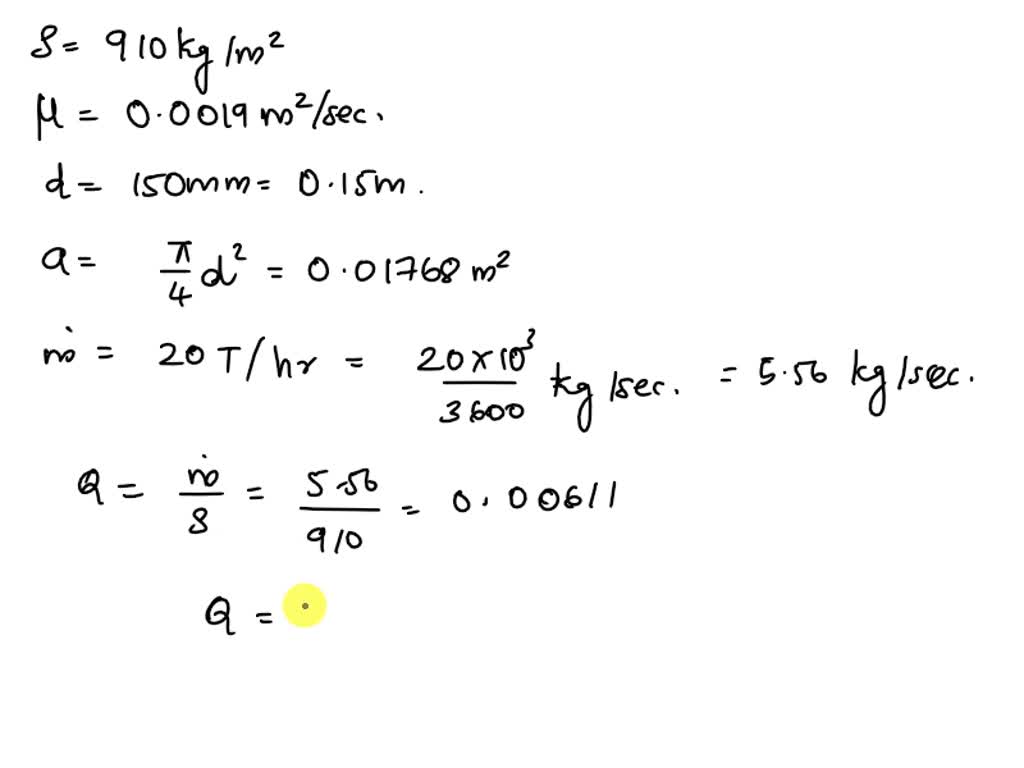 ρ = 910 kg/m²
μ = 0.0019 m²/sec.
d = 150mm = 0.15m.
a = π/4 d² = 0.01768 m²
ṁ = 20 T/hr = 20×10³/3600 kg/sec. = 5.56 kg/sec.
Q = ṁ/ρ = 5.56/910 = 0.00611
Q =